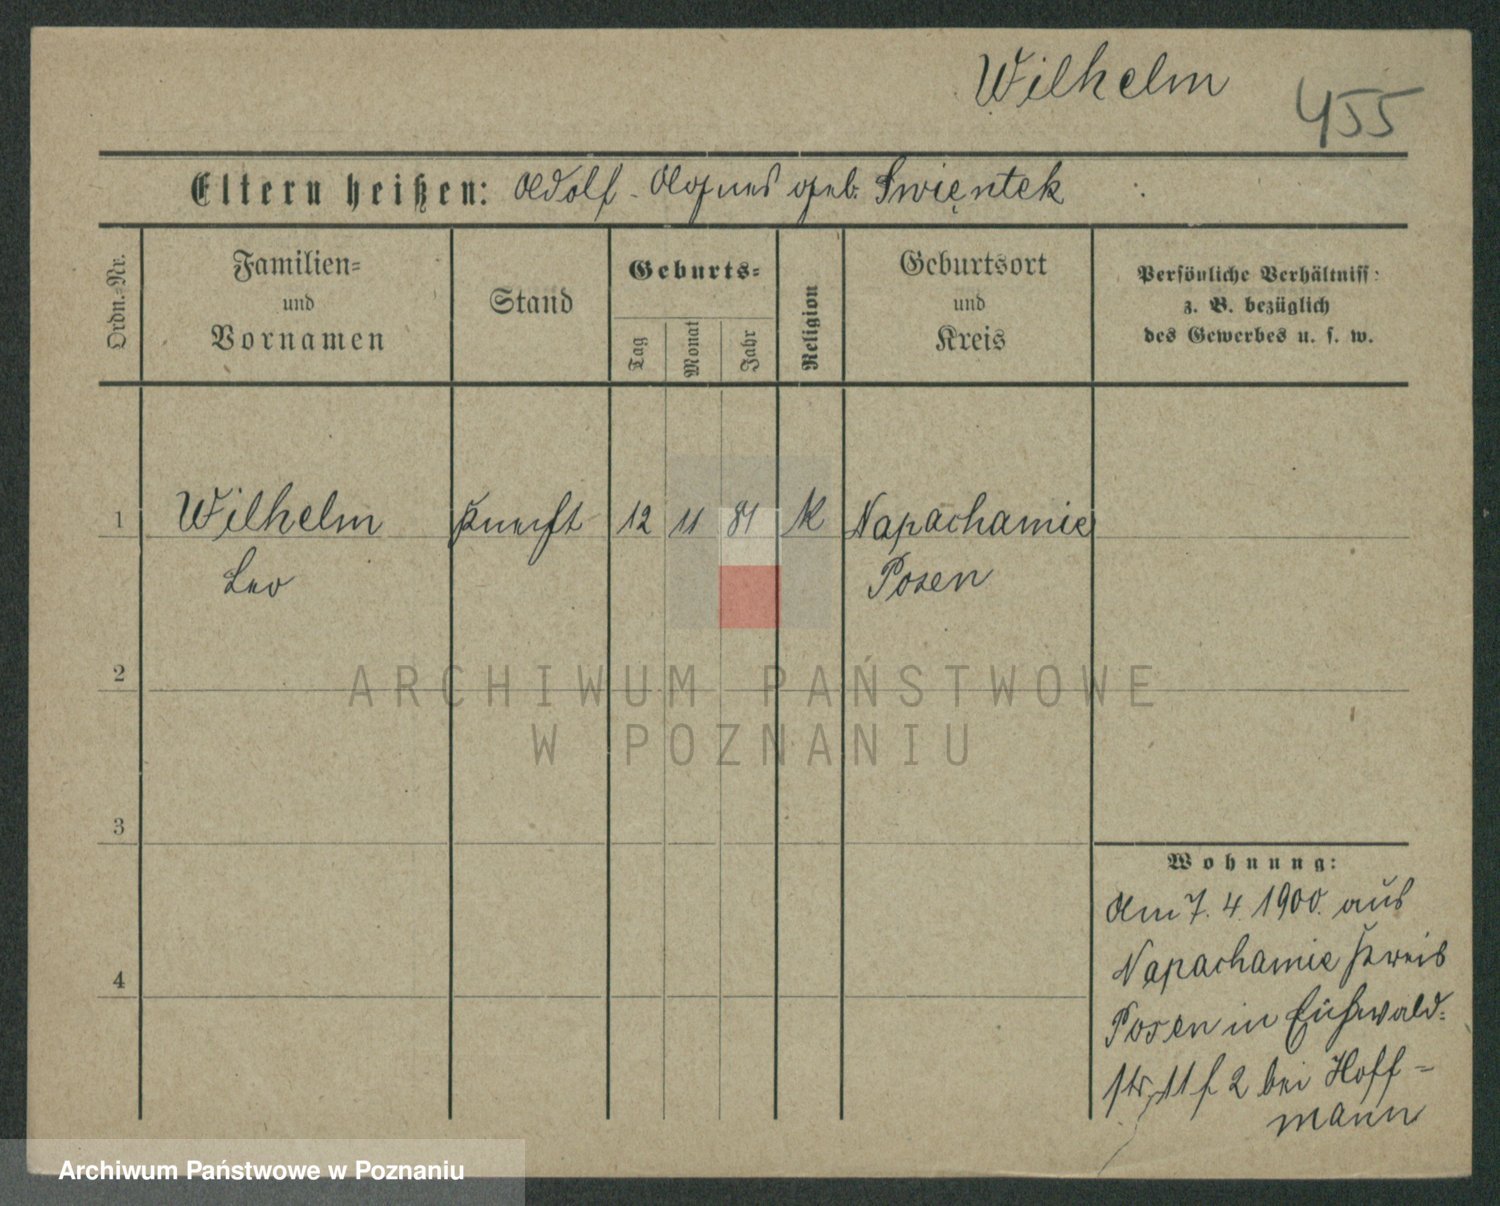 Wilhelm
455
Eltern heißen: Adolf - Agnes geb. Swiętek
Ordn.-Nr.
Familien-
und
Vornamen
Stand
Geburts-
Tag
Monat
Jahr
Religion
Geburtsort
und
Kreis
Persönliche Verhältniss:
z. B. bezüglich
des Gewerbes u. s. w.
1 Wilhelm Knecht 12 11 81 k Napachanie
Leo Posen
2
ARCHIWUM PAŃSTWOWE
W POZNANIU
3
Wohnung:
Am 7. 4. 1900. aus
Napachanie Kreis
4
Posen in Eichwald-
str. 11 f 2 bei Hoff-
mann
Archiwum Państwowe w Poznaniu